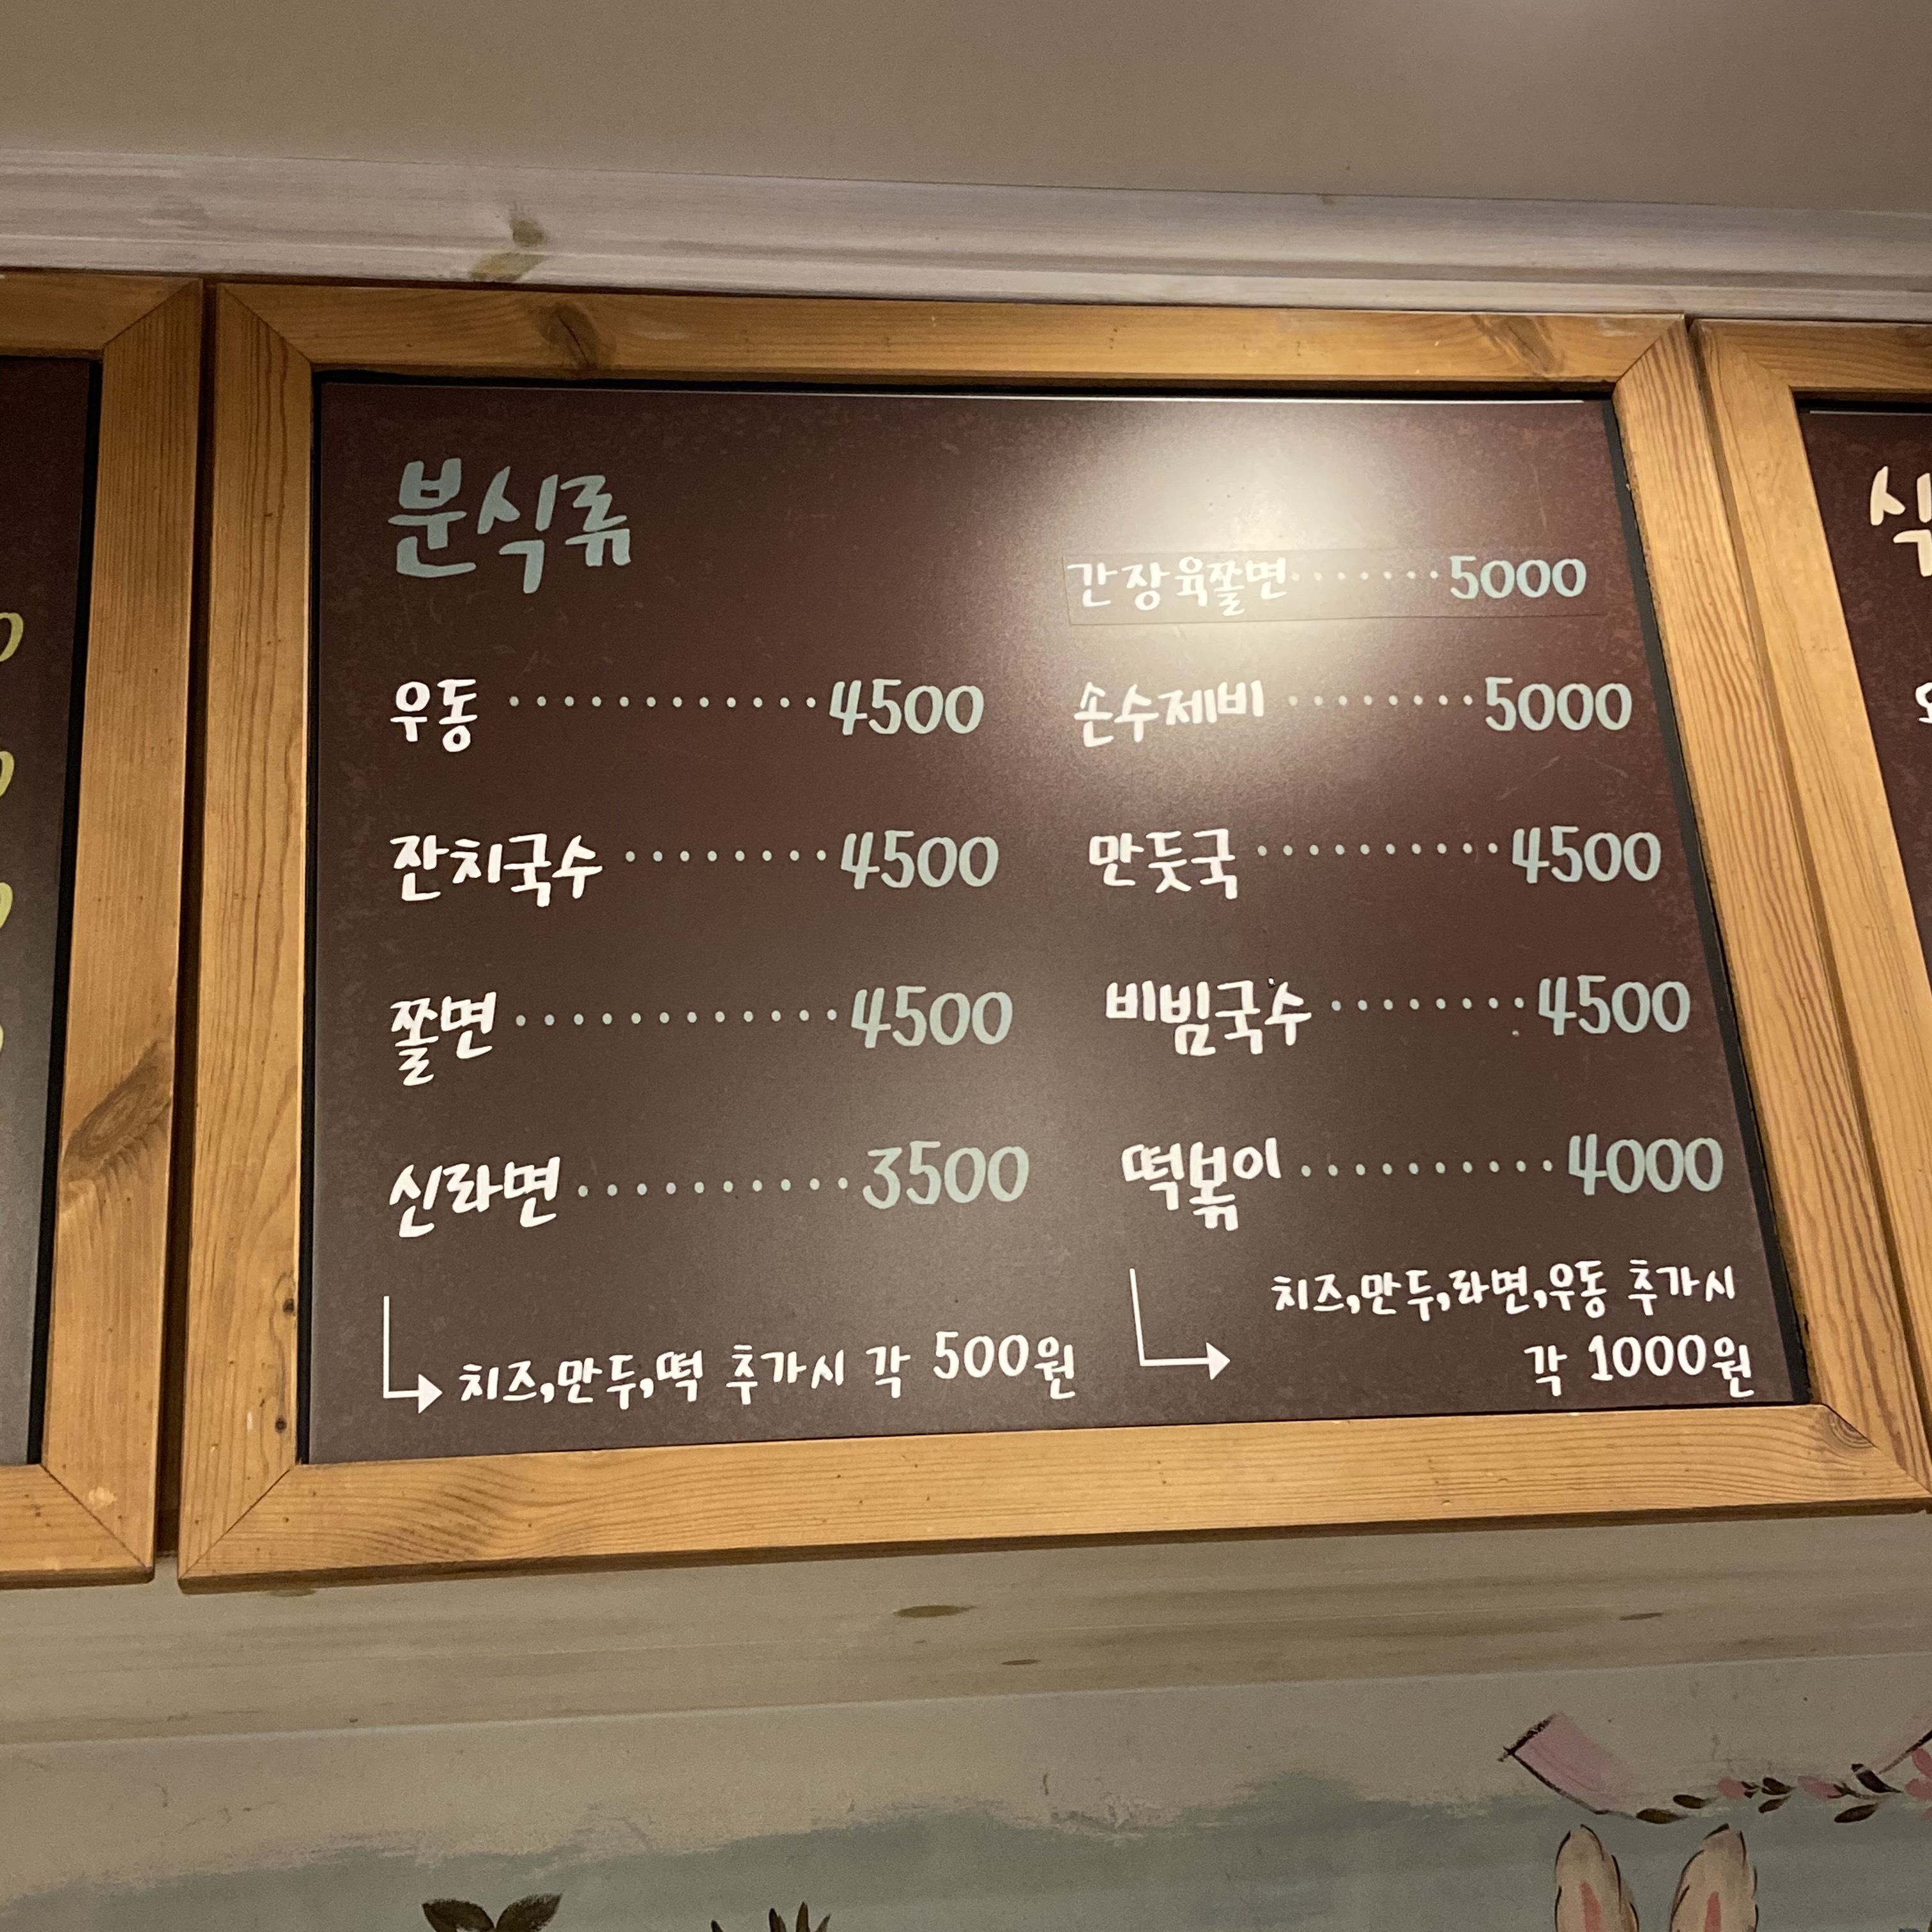 분식류
우동 ············ 4500
잔치국수 ········ 4500
쫄면 ············ 4500
신라면 ·········· 3500
치즈,만두,떡 추가시 각 500원
간장육쫄면 ······· 5000
손수제비 ········ 5000
만듯국 ·········· 4500
비빔국수 ········ 4500
떡볶이 ·········· 4000
치즈,만두,라면,우동 추가시
각 1000원